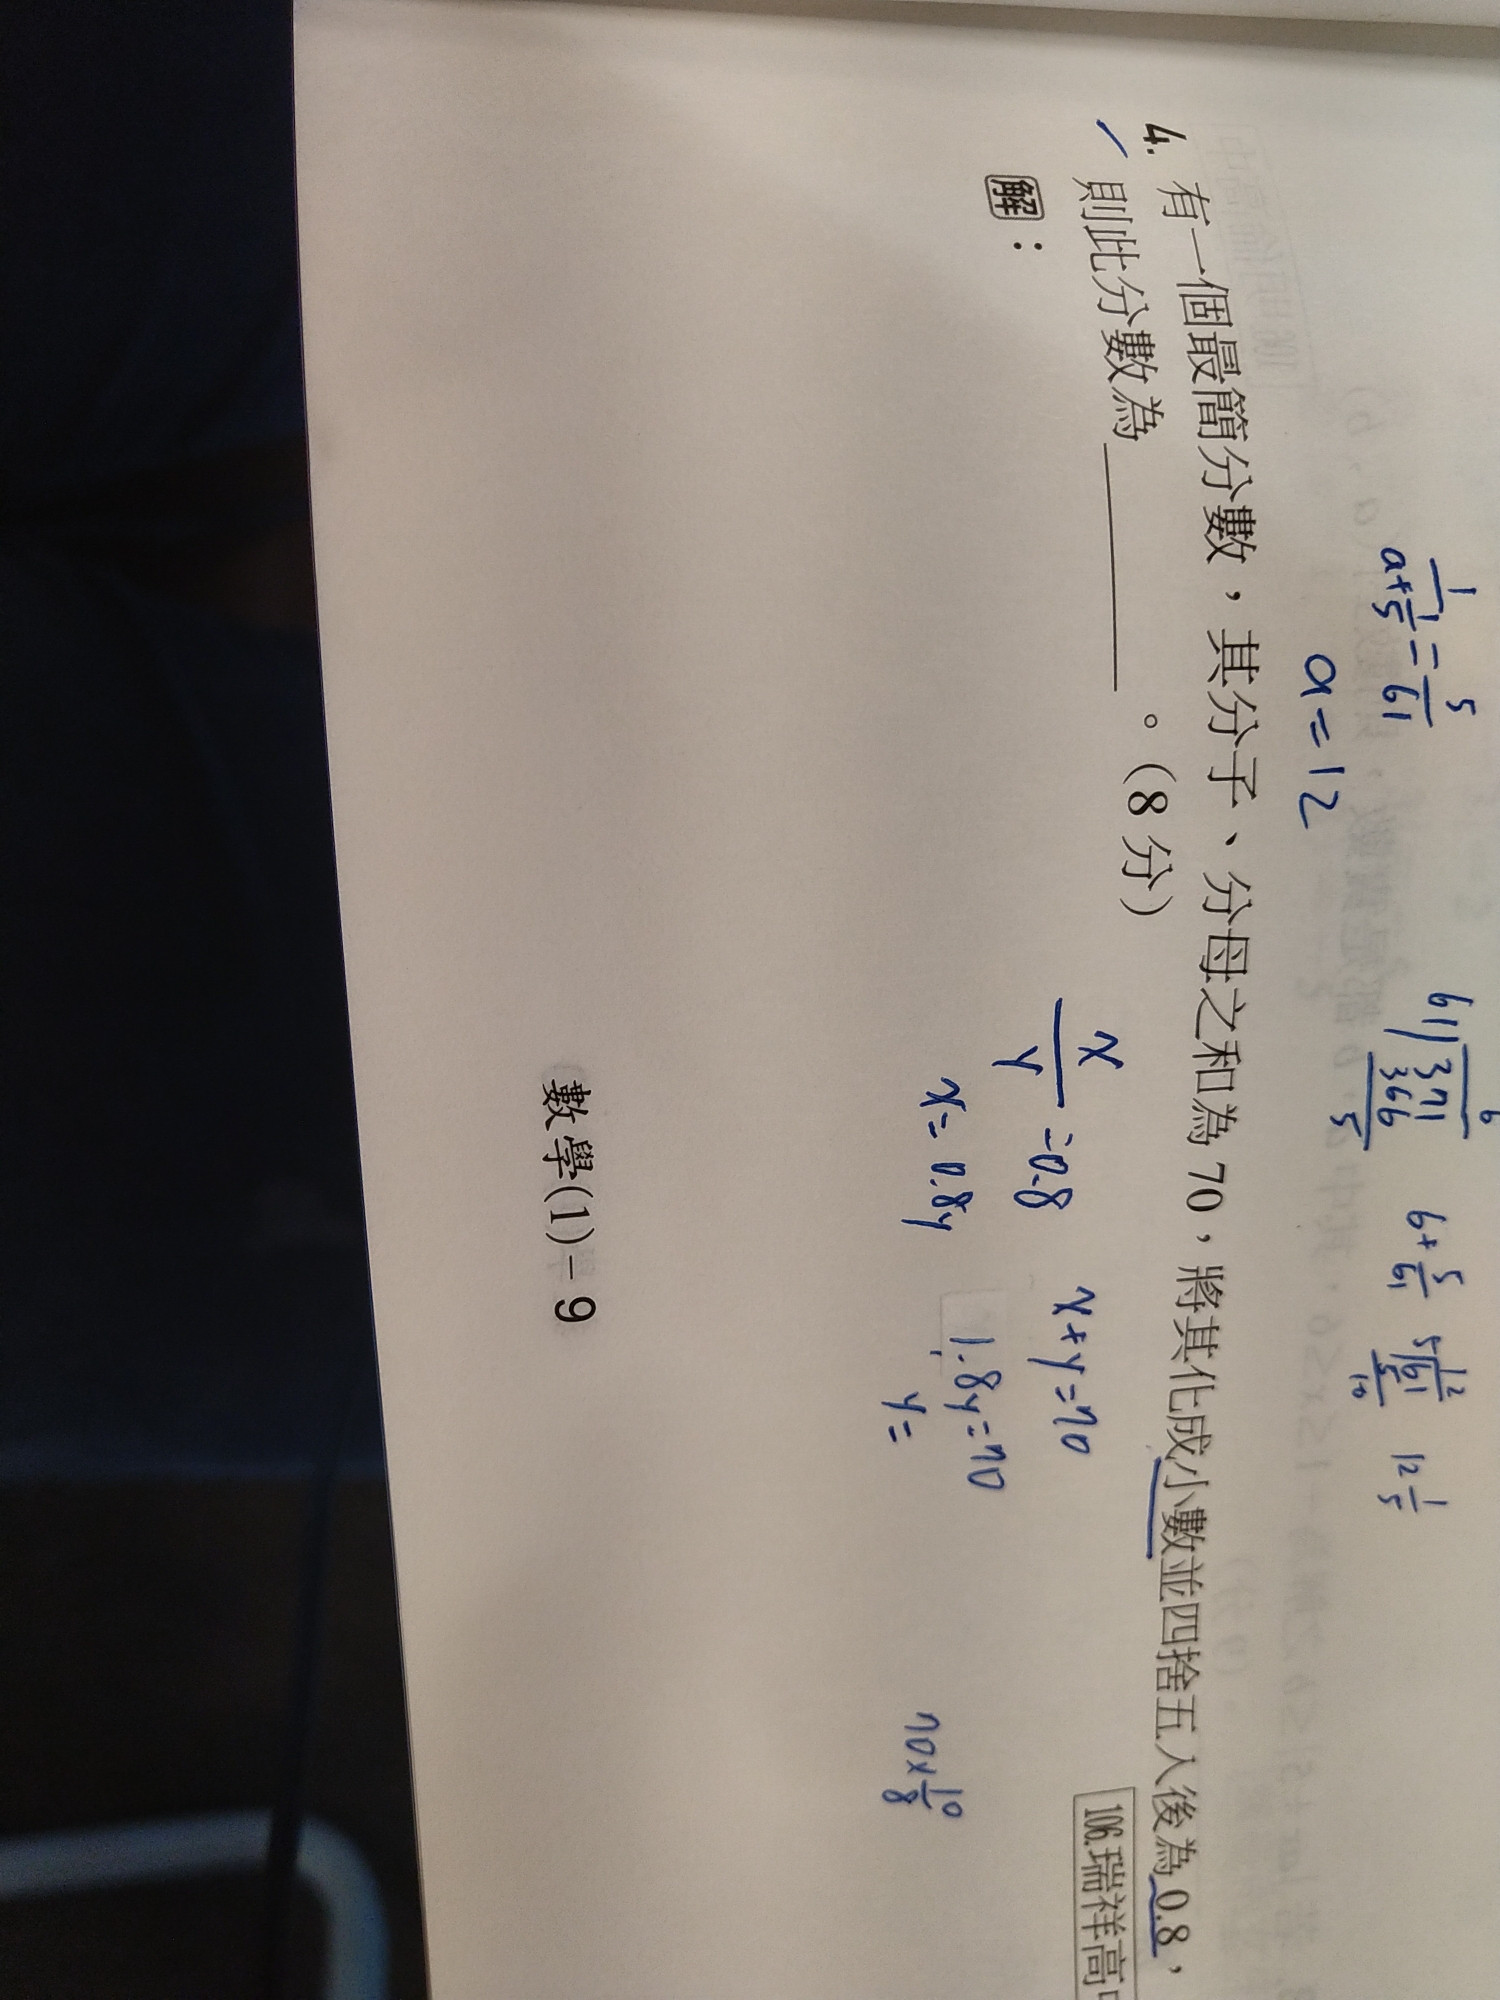 1/(a+1/5) = 5/61
a=12
61)371
366
5
6+5/61
5)61
5
10
12 1/5
4. 有一個最簡分數，其分子、分母之和為 70，將其化成小數並四捨五入後為 0.8，
則此分數為＿＿＿＿。(8 分)
106.瑞祥高
解：
x/y=0.8
x+y=70
x=0.8y
1.8y=70
y=
70×10/8
數學(1)－9